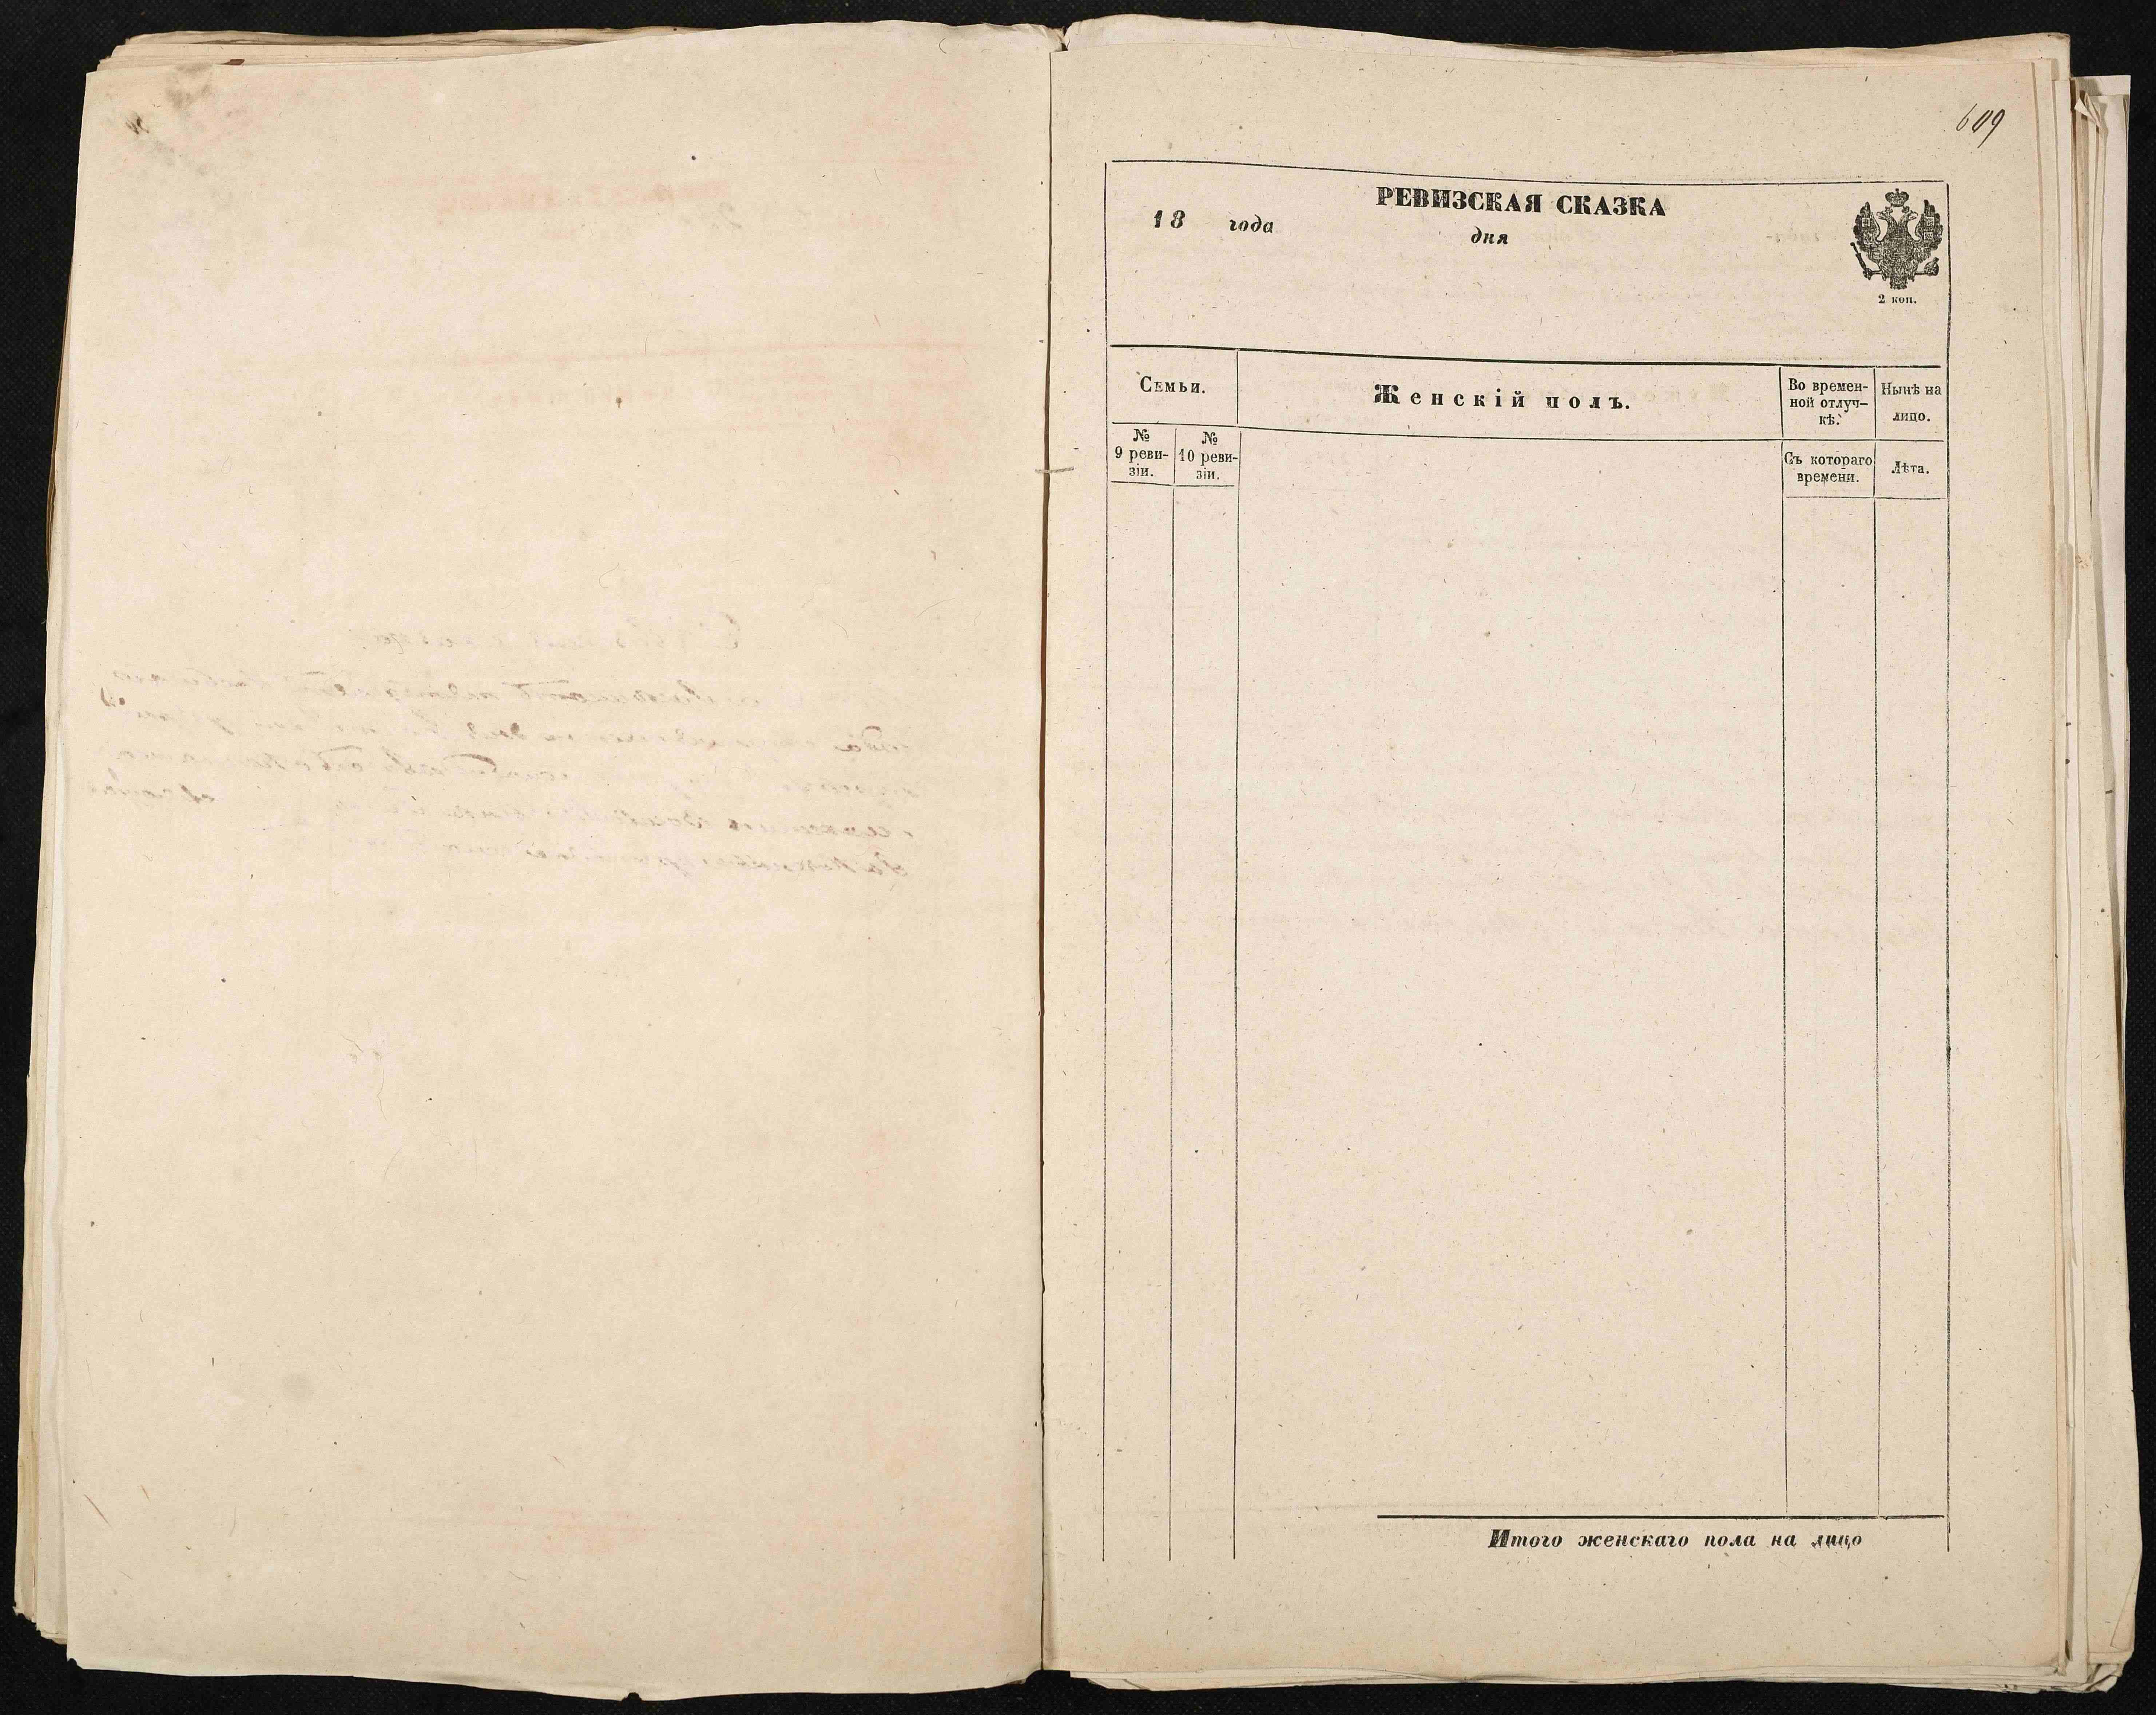 609
РЕВИЗСКАЯ СКАЗКА
18 года дня
2 коп.
Семьи.
Женскій полъ.
Во времен-
ной отлуч-
кѣ.
Нынѣ на
лицо.
№
9 реви-
зіи.
№
10 реви-
зіи.
Съ котораго
времени.
Лѣта.
Итого женскаго пола на лицо